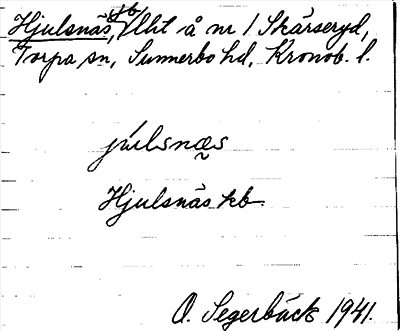 Hjulsnäs, jb, Lht å nr 1 Skärseryd,
Torpa sn, Sunnerbo hd, Kronob. l.
júlsnæs
Hjulsnäs kb.
O. Segerbäck 1941.